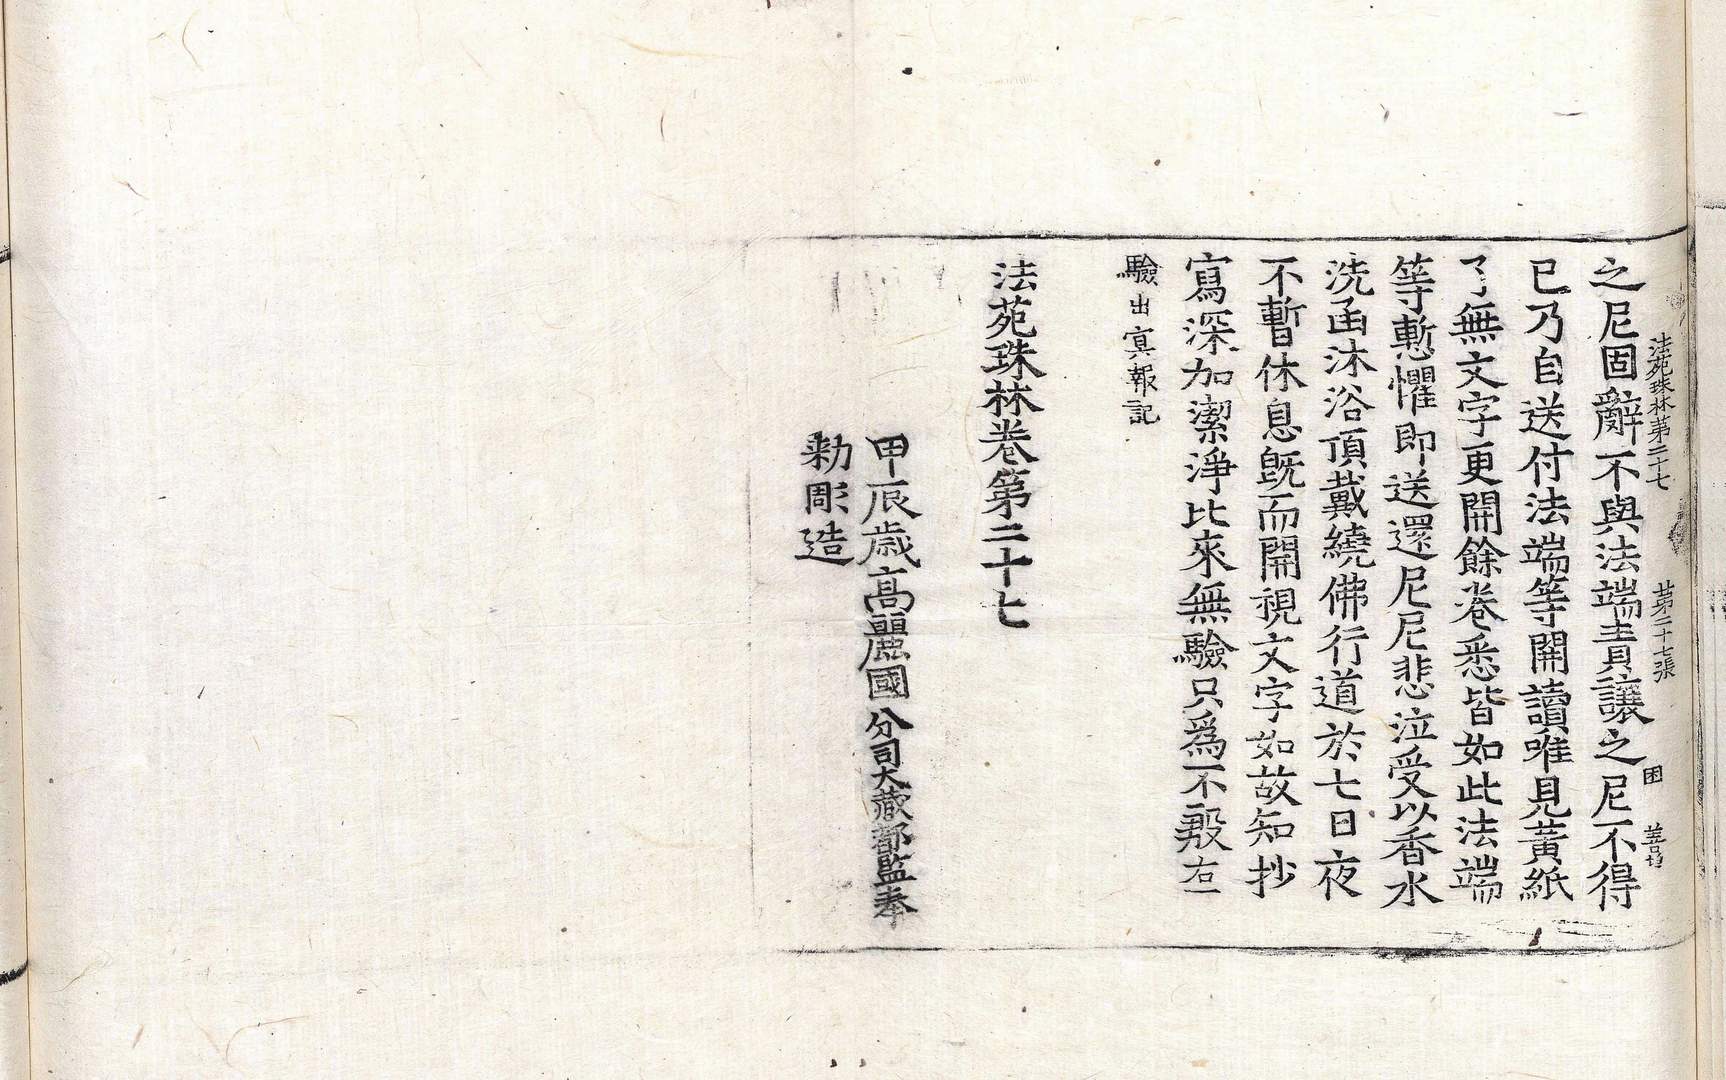 法苑珠林第二十七 第二十七張 困
之尼固辭不與法端責讓之尼不得
已乃自送付法端等開讀唯見黃紙
了無文字更開餘卷悉皆如此法端
等慙懼即送還尼尼悲泣受以香水
洗函沐浴頂戴繞佛行道於七日夜
不暫休息旣而開視文字如故知抄
寫深加潔淨比來無驗只爲不殷右一
驗出冥報記
法苑珠林卷第二十七
甲辰歲高麗國分司大藏都監奉
勑彫造